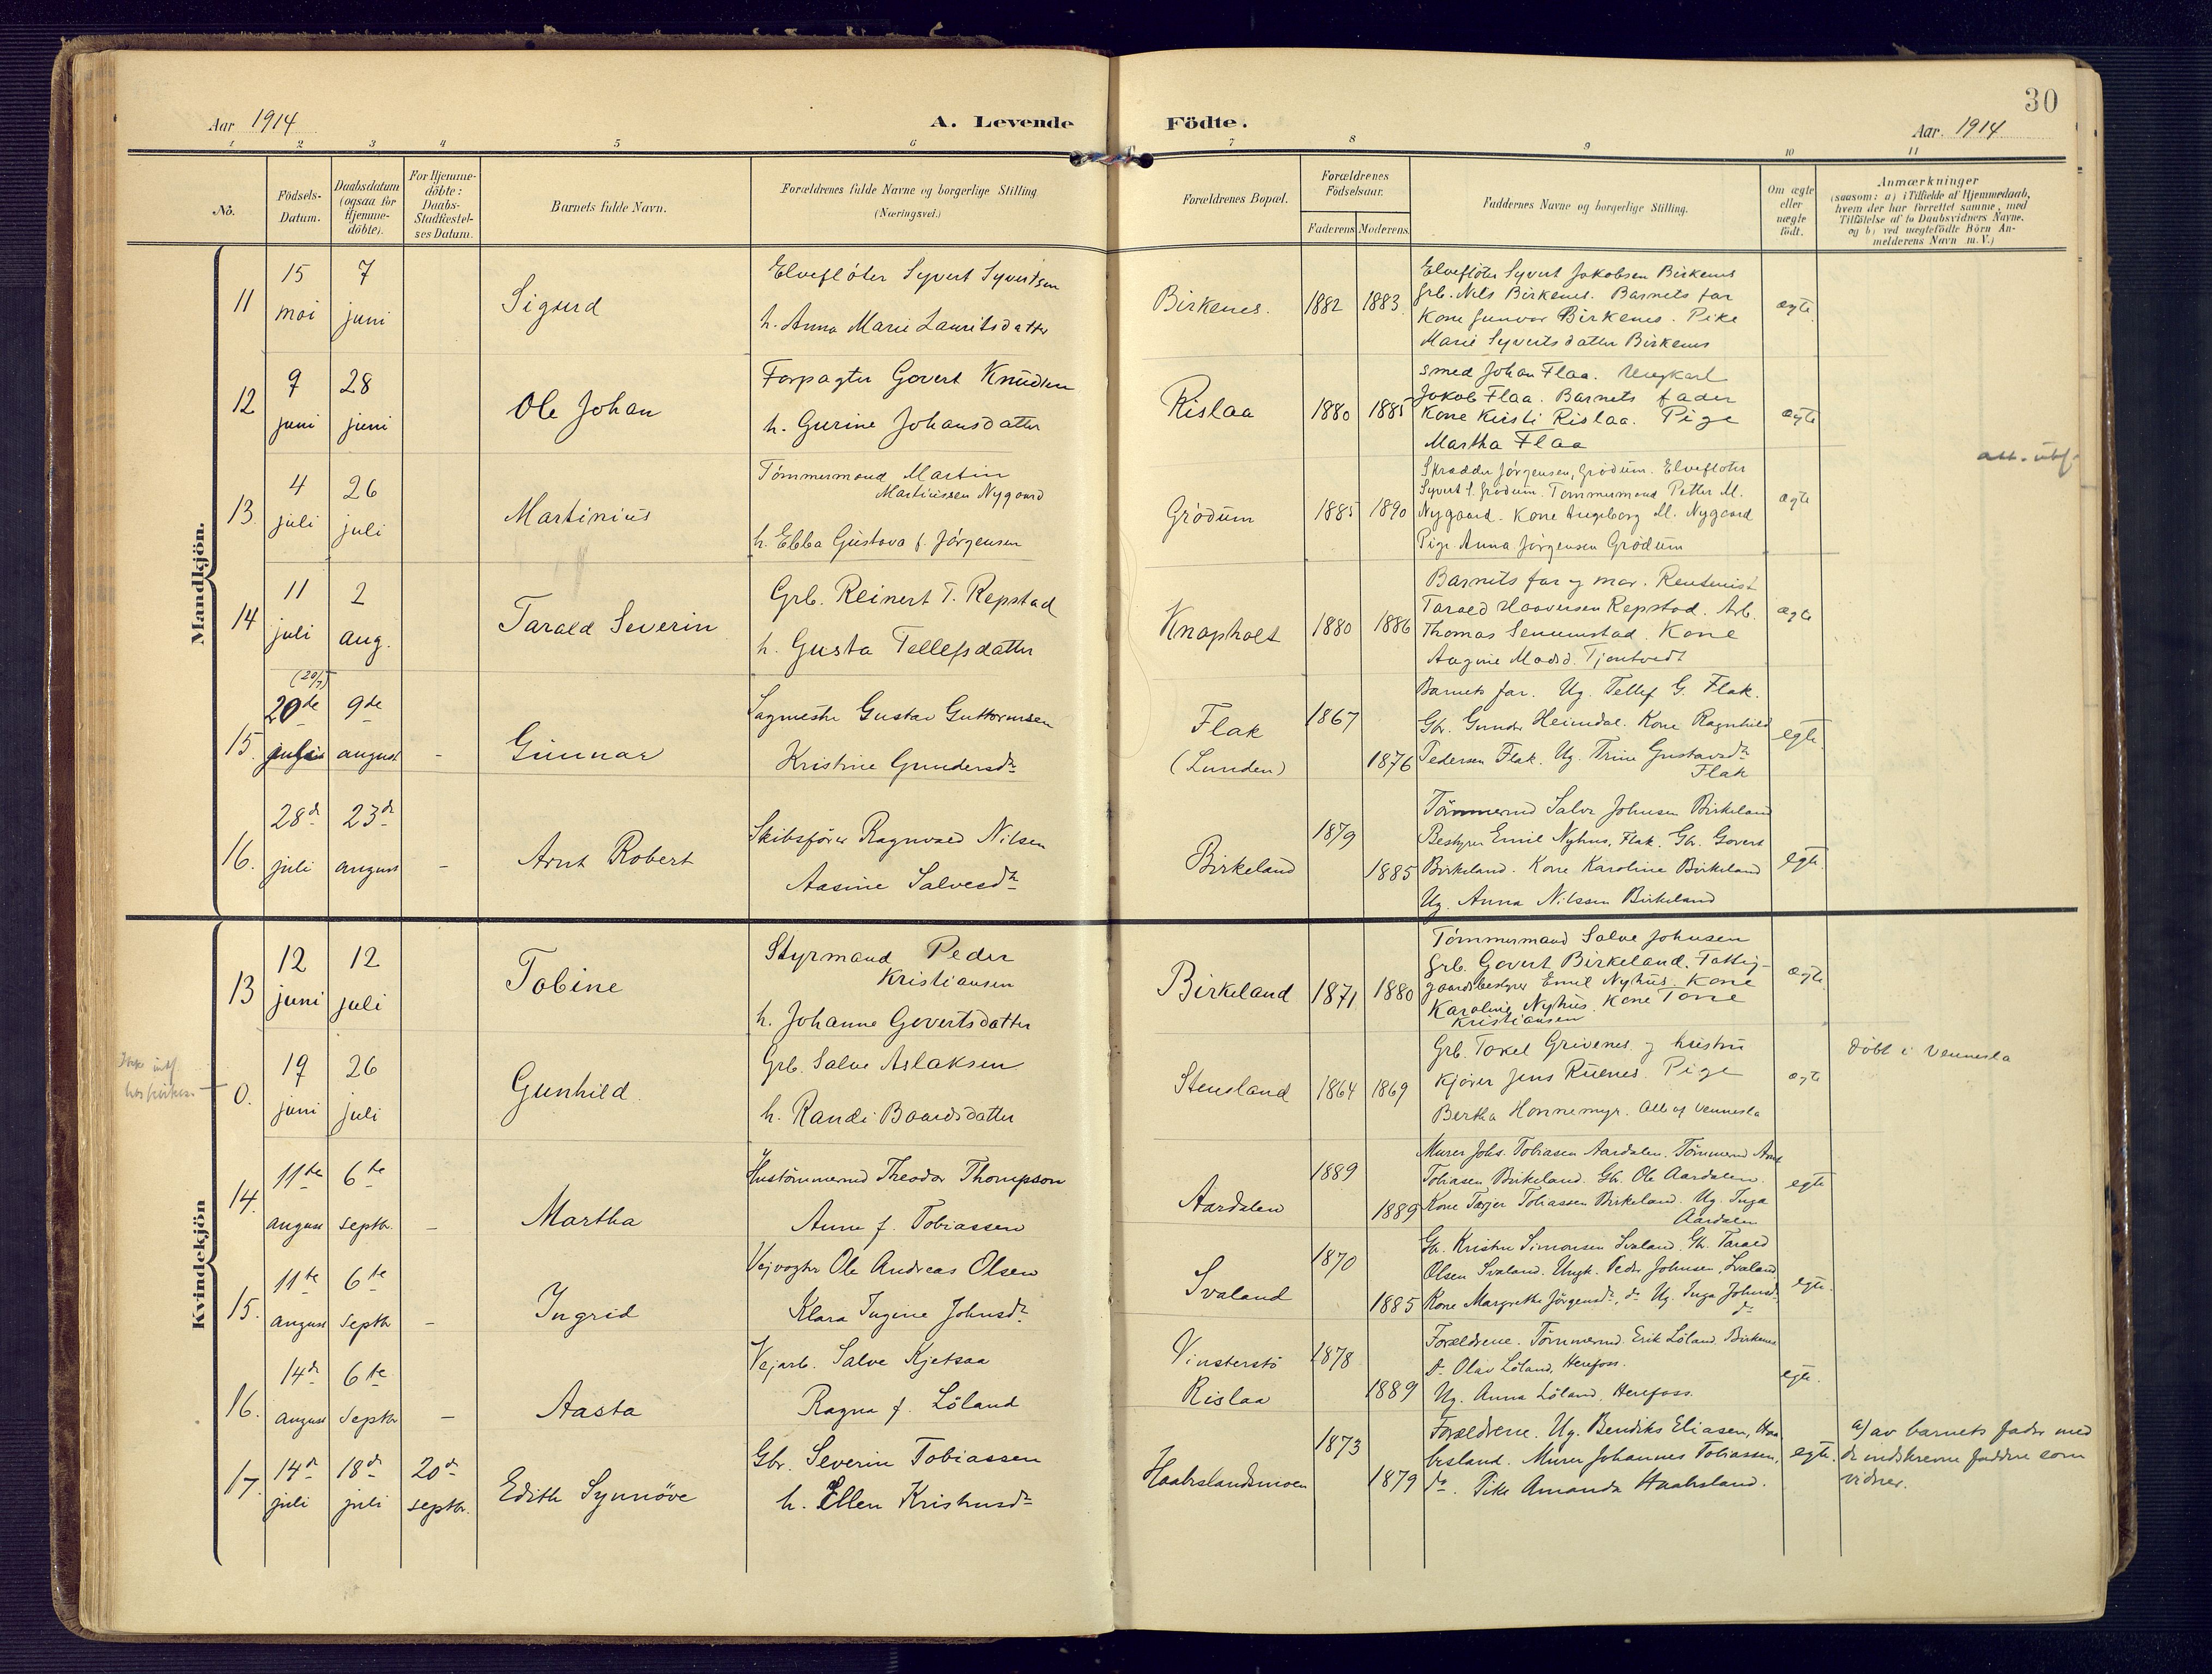 30
Aar 1914
A. Levende
Födte.
Aar. 1914
1 2 3 4 5 6 7 8 9 10 11
No.
Födsels-
Datum.
Daabsdatum
(ogsaa for
Hjemme-
döbte).
For Hjemme-
döbte:
Daabs-
Stadfæstel-
ses Datum.
Barnets fulde Navn.
Forældrenes fulde Navne og borgerlige Stilling
(Næringsvei.)
Forældrenes Bopæl.
Forældrenes
Födselsaar.
Faderens Moderens.
Faddernes Navne og borgerlige Stilling.
Om ægte
eller
uægte
födt.
Anmærkninger
(saasom: a) i Tilfælde af Hjemmedaab,
hvem der har forrettet samme, med
Tilföielse af to Daabsvidners Navne.
og b) ved uægtefödte Börn An-
melderens Navn m. V.)
Mandkjön.
11
15
mai
7
juni
Sigurd
Elvefløter Syvert Syvertsen
h. Anna Marie Lauritsdatter
Birkenes.
1882 1883
Elvefløter Syvert Jakobsen Birkenes
Grb. Nils Birkenes. Barnets far
Kone Gunvor Birkenes. Pike
Marie Syvertsdatter Birkenes
ægte
12
9
juni
28
juni
Ole Johan
Forpagter Govert Knudsen
h. Gurine Johansdatter
Rislaa
1880 1885
Smed Johan Flaa. Ungkarl
Jakob Flaa. Barnets fader
Kone Kirsti Rislaa. Pige
Martha Flaa
ægte
att. utf.
13.
4
juli
26
juli
Martinius
Tømmermand Martin
Martiniussen Nygaard
h. Ebba Gustava f. Jørgensen
Grødum
1885 1890
Skrædder Jørgensen, Grødum. Elvefløter
Syvert S. Grødum. Tømmermand Petter M.
Nygaard. Kone Ingeborg M. Nygaard
Pige Anna Jørgensen Grødum
ægte
14
11
juli
2
aug.
Tarald Severin
Grb. Reinert T. Repstad
h. Gusta Tellefsdatter
Knapholt
1880 1886
Barnets far og mor. Rentenist
Tarald Haaversen Repstad. Arb.
Thomas Senumstad. Kone
Aagine Madsd. Tjentvedt
ægte
15.
(20/7)
20de
juli
9de
august
-
Gunnar
Sagmester Gustav Guttormsen
Kristine Gundersdr
Flak
(Lunden)
1867
1876
Barnets far. Ug. Tellef G. Flak.
Gbr. Gunder Heimdal. Kone Ragnhild
Pedersen Flak. Ug. Trine Gustavsdr
Flak
egte.
16.
28de
juli
23de
august
-
Arnt Robert
Skibsfører Ragnvald Nilsen
Aasine Salvesdr
Birkeland
1879
1885
Tömmermd Salve Johnsen Birkeland
Bestyrer Emil Nyhus, Flak. Gbr. Govert
Birkeland. Kone Karoline Birkeland
Ug. Anna Nilssen Birkeland
egte.
Kvindekjön
13
12
juni
12
juli
Tobine
Styrmand Peder
Kristiansen
h. Johanne Govertsdatter
Birkeland
1871 1880
Tömmermand Salve Johnsen
Grb. Govert Birkeland. Fattig-
gaardsbestyrer Emil Nyhus. Kone
Karoline Nyhus. Kone Tone
Kristiansen
ægte.
0.
19
juni
26
juli
Gunhild
Grb. Salve Aslaksen
h. Randi Baardsdatter
Stensland
1864 1869
Grb. Tokel Grivenes og hustru
Kjører Jens Ruenes. Pige
Bertha Honnemyr. Alle af Vennesla
ægte
Døbt i Vennesla
14.
11te
august
6te
septbr.
-
Martha
Hustömmermd Theodor Thompson
Anne f. Tobiassen
Aardalen
1889
1889
Murer Johs. Tobiasen Aardalen. Tömmermd Arnt
Tobiasen Birkeland. Gbr. Ole Aardalen.
Kone Tarjer Tobiassen Birkeland. Ug. Inga
Aardalen
egte
15.
11te
august
6te
septbr
-
Ingrid
Vejvogter Ole Andreas Olsen
Klara Ingine Johnsdr
Svaland
1870
1885
Gbr. Kristen Simonsen Svaland. Gbr. Tarald
Olsen Svaland. Ungk. Peder Johnsen, Svaland
Kone Margrethe Jörgensdr, do Ug. Inga Johnsdr
do
egte.
16.
14de
august
6te
septbr
-
Aasta
Vejarb. Salve Kjetsaa
Ragna f. Löland
Vinsterstö
Rislaa
1878
1889
Forældrene. Tömmermd. Erik Löland Birkenes
Do Olav Löland, Herefoss.
Ug. Anna Löland. Herefoss.
egte.
17.
14de
juli
18de
juli
20de
septbr.
Edith Synnöve
Gbr. Severin Tobiassen
h. Ellen Kristensdr
Haabeslandsmoen
1873
1879
Forældrene. Ug. Bendiks Eliasen, Haa
besland. Murer Johannes Tobiassen,
do. Pike Amanda Haabesland.
egte.
a) av barnets fader med
de indskrevne faddere som
vidner.